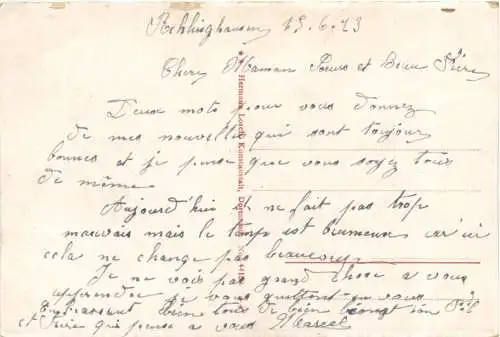 Recklinghausen 15.6.23
Chers Maman Soeurs et Beau Frère
Deux mots pour vous donnez
de mes nouvelles qui sont toujours
bonnes et je pense que vous soyez tous
de même.
Aujourd'hui il ne fait pas trop
mauvais mais le temps est brumeux car ici
cela ne change pas beaucoup.
Je ne vois pas grand chose a vous
apprendre je vous quittent en vous
Embrassant bien tous de bien ton Fils
et Frère qui pense a vous Marcel
Hermann Lorch, Kunstanstalt, Dortmund